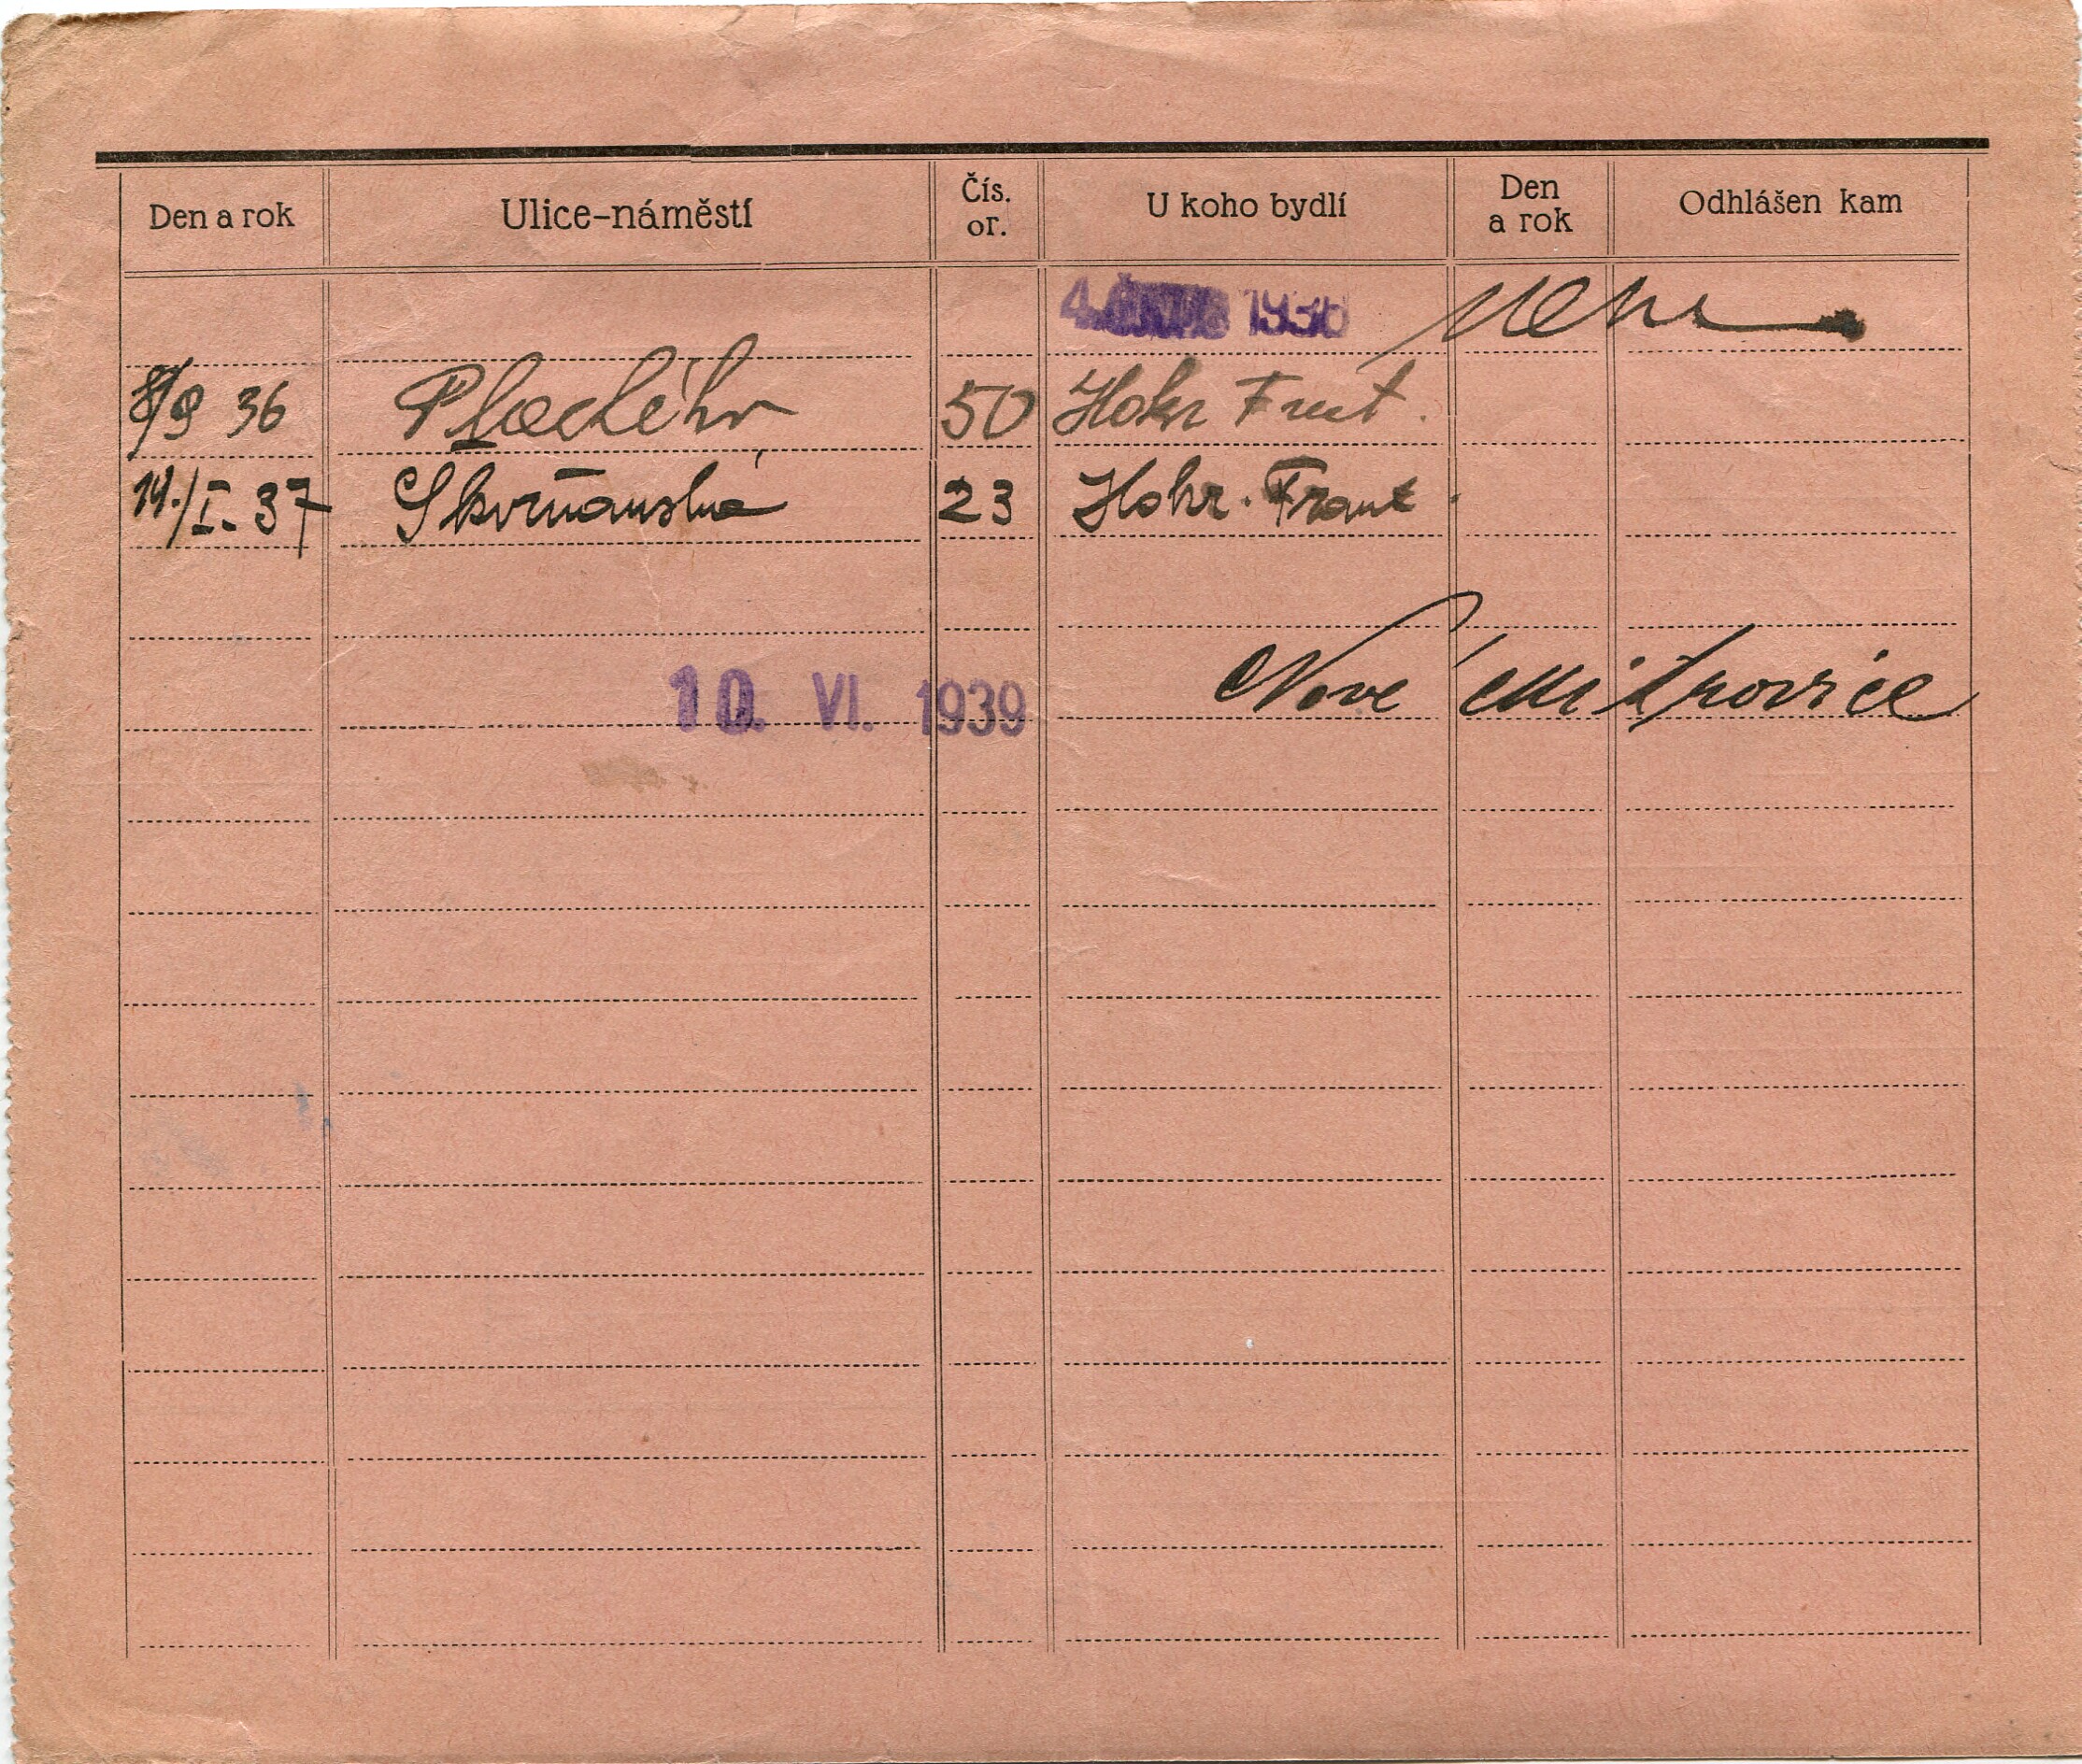 Den a rok Ulice-náměstí Čís. or. U koho bydlí Den a rok Odhlášen kam
4. 1936
8/9 36 Plachého 50 Hokr Frant.
14./I. 37 Skvrňanská 23 Hokr. Frant.
10. VI. 1939 Nové Mitrovice